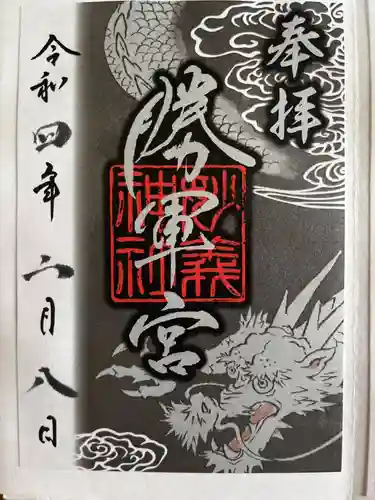 奉拝
勝軍宮
妙義神社
令和四年 六月八日